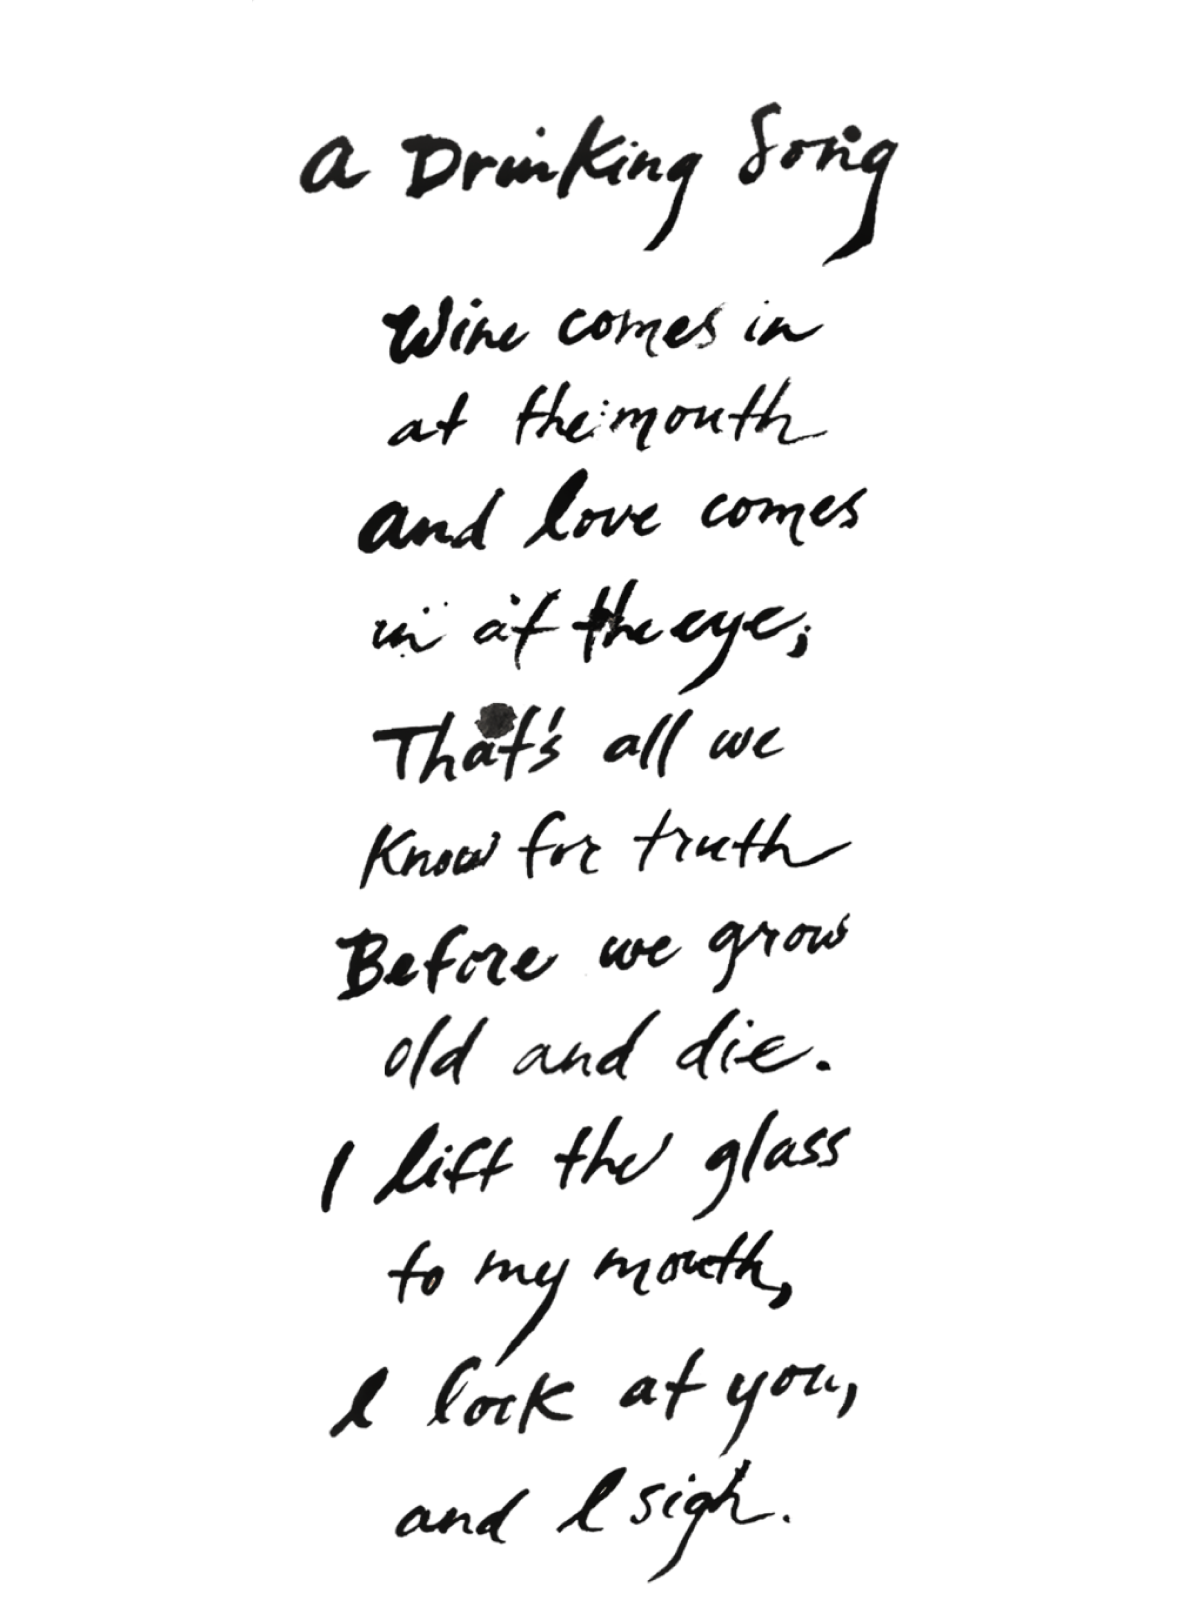 A Drinking Song
Wine comes in
at the mouth
and love comes
in at the eye;
That's all we
Know for truth
Before we grow
old and die.
I lift the glass
to my mouth,
I look at you,
and I sigh.